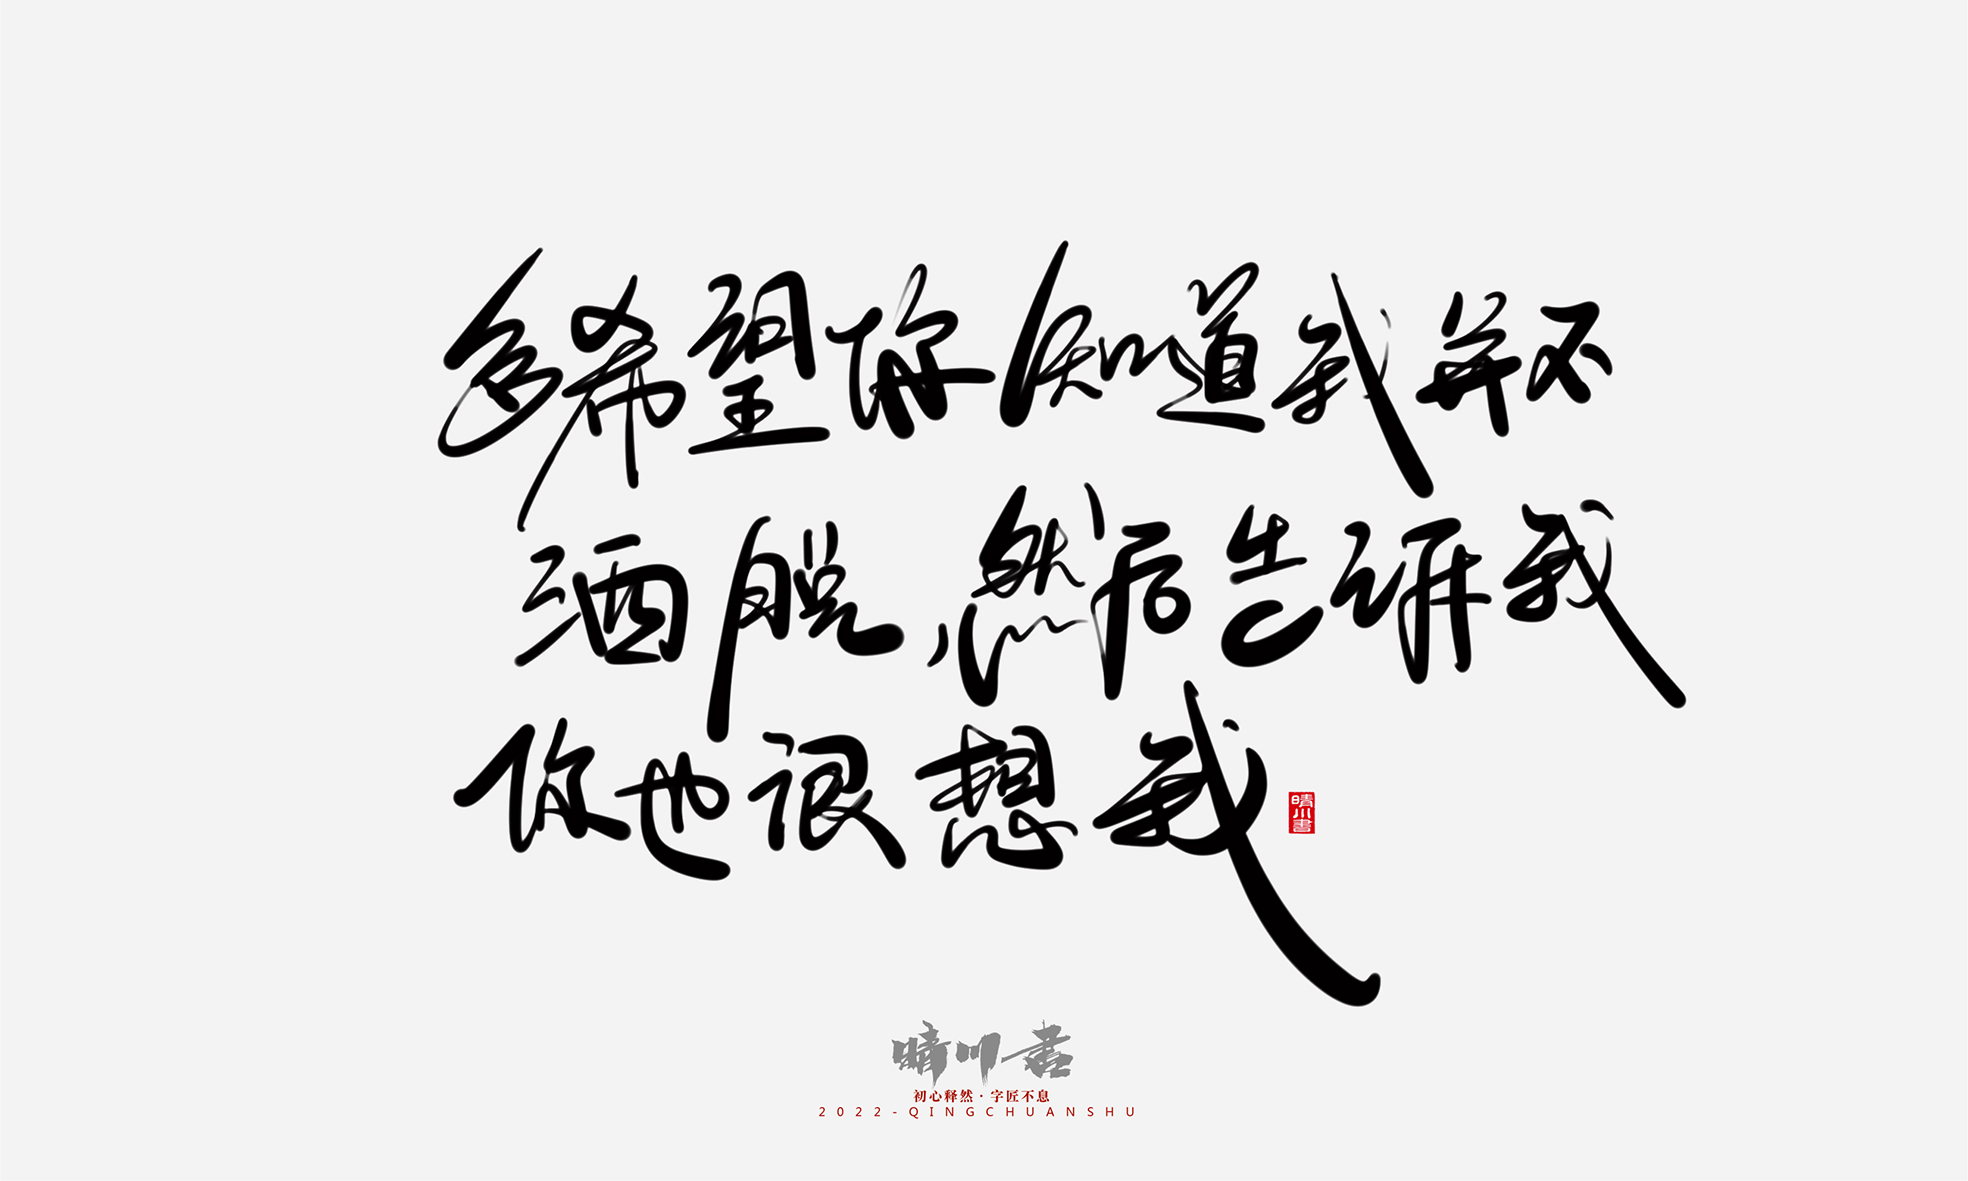 多希望你知道我并不
洒脱,然后告诉我
你也很想我
晴川书
晴川书
初心释然·字匠不息
2022-QINGCHUANSHU